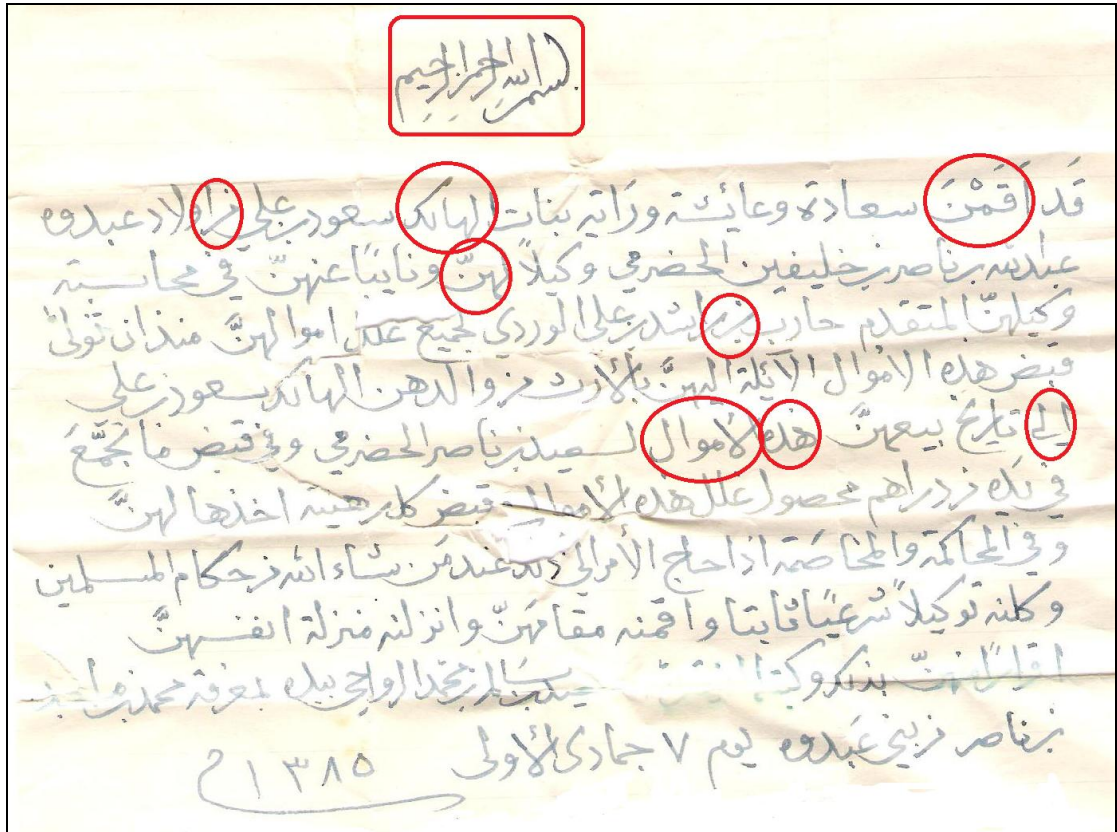 بسم الله الرحمن الرحيم
قد اَقَمْنَ سعادة وعايشة وراية بنات الهالك سعود بن علي من اولاد عبدوه
عبدالله بن ناصر بن خليفين الحضرمي وكيلاً لهنّ ونايبًا عنهنّ في محاسبة
وكيلهنّ المتقدم حارب بن راشد بن علي الوردي لجميع غلل اموالهنَّ منذ ان تولّى
قبض هذه الاموال الآئلة اليهنّ بالأرث من والدهن الهالك سعود بن علي
إلى تاريخ بيعهنّ هذه الأموال لسعيد بن ناصر الحضرمي وفي قبض ما تجمّعَ
في يده من دراهم محصول غلل هذه الأموال قبض كل رهينة اخذها لهنّ
وفي المحاكمة والمخاصمة اذا حاج الأمر الى ذلك عند من شاء الله من حكام المسلمين
وكلنه توكيلاً شرعيًا ثابتا واقمنه مقامهنّ وانزلنه منزلة انفسهنَّ
اقرارًا منهنّ بذلك وكتبه سالم بن محمد الرواحي بيده بمعرفة محمد بن
بن ناصر من بني عبدوه يوم ٧ جمادى الأولى ١٣٨٥